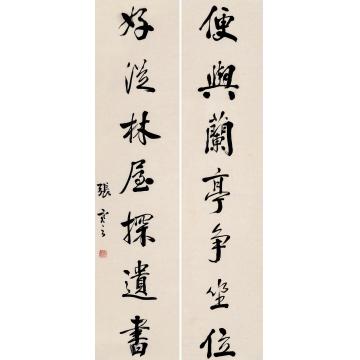 便與蘭亭争坐位
好從林屋探遺書
張寒